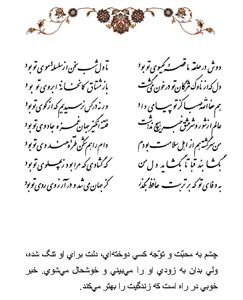 دوش در حلقه ما قصه گیسوی تو بود
تا دل شب سخن از سلسله موی تو بود
دل که از ناوک مژگان تو در خون می‌گشت
باز مشتاق کمانخانه ابروی تو بود
هم عفاالله صبا کز تو پیامی داد
ور نه در کس نرسیدیم که از کوی تو بود
عالم از شور و شر عشق خبر هیچ نداشت
فتنه‌انگیز جهان غمزه جادوی تو بود
من سرگشته هم از اهل سلامت بودم
دام راهم شکن طره هندوی تو بود
بگشا بند قبا تا بگشاید دل من
که گشادی که مرا بود ز پهلوی تو بود
به وفای تو که بر تربت حافظ بگذر
کز جهان می‌شد و در آرزوی روی تو بود
چشم به محبّت و توّجه كسي دوخته‌اي، دلت براي او تنگ شده،
ولي بدان به زودي او را مي‌بيني و خوشحال مي‌شوي. خبر
خوبي در راه است كه زندگيت را بهتر مي‌كند.